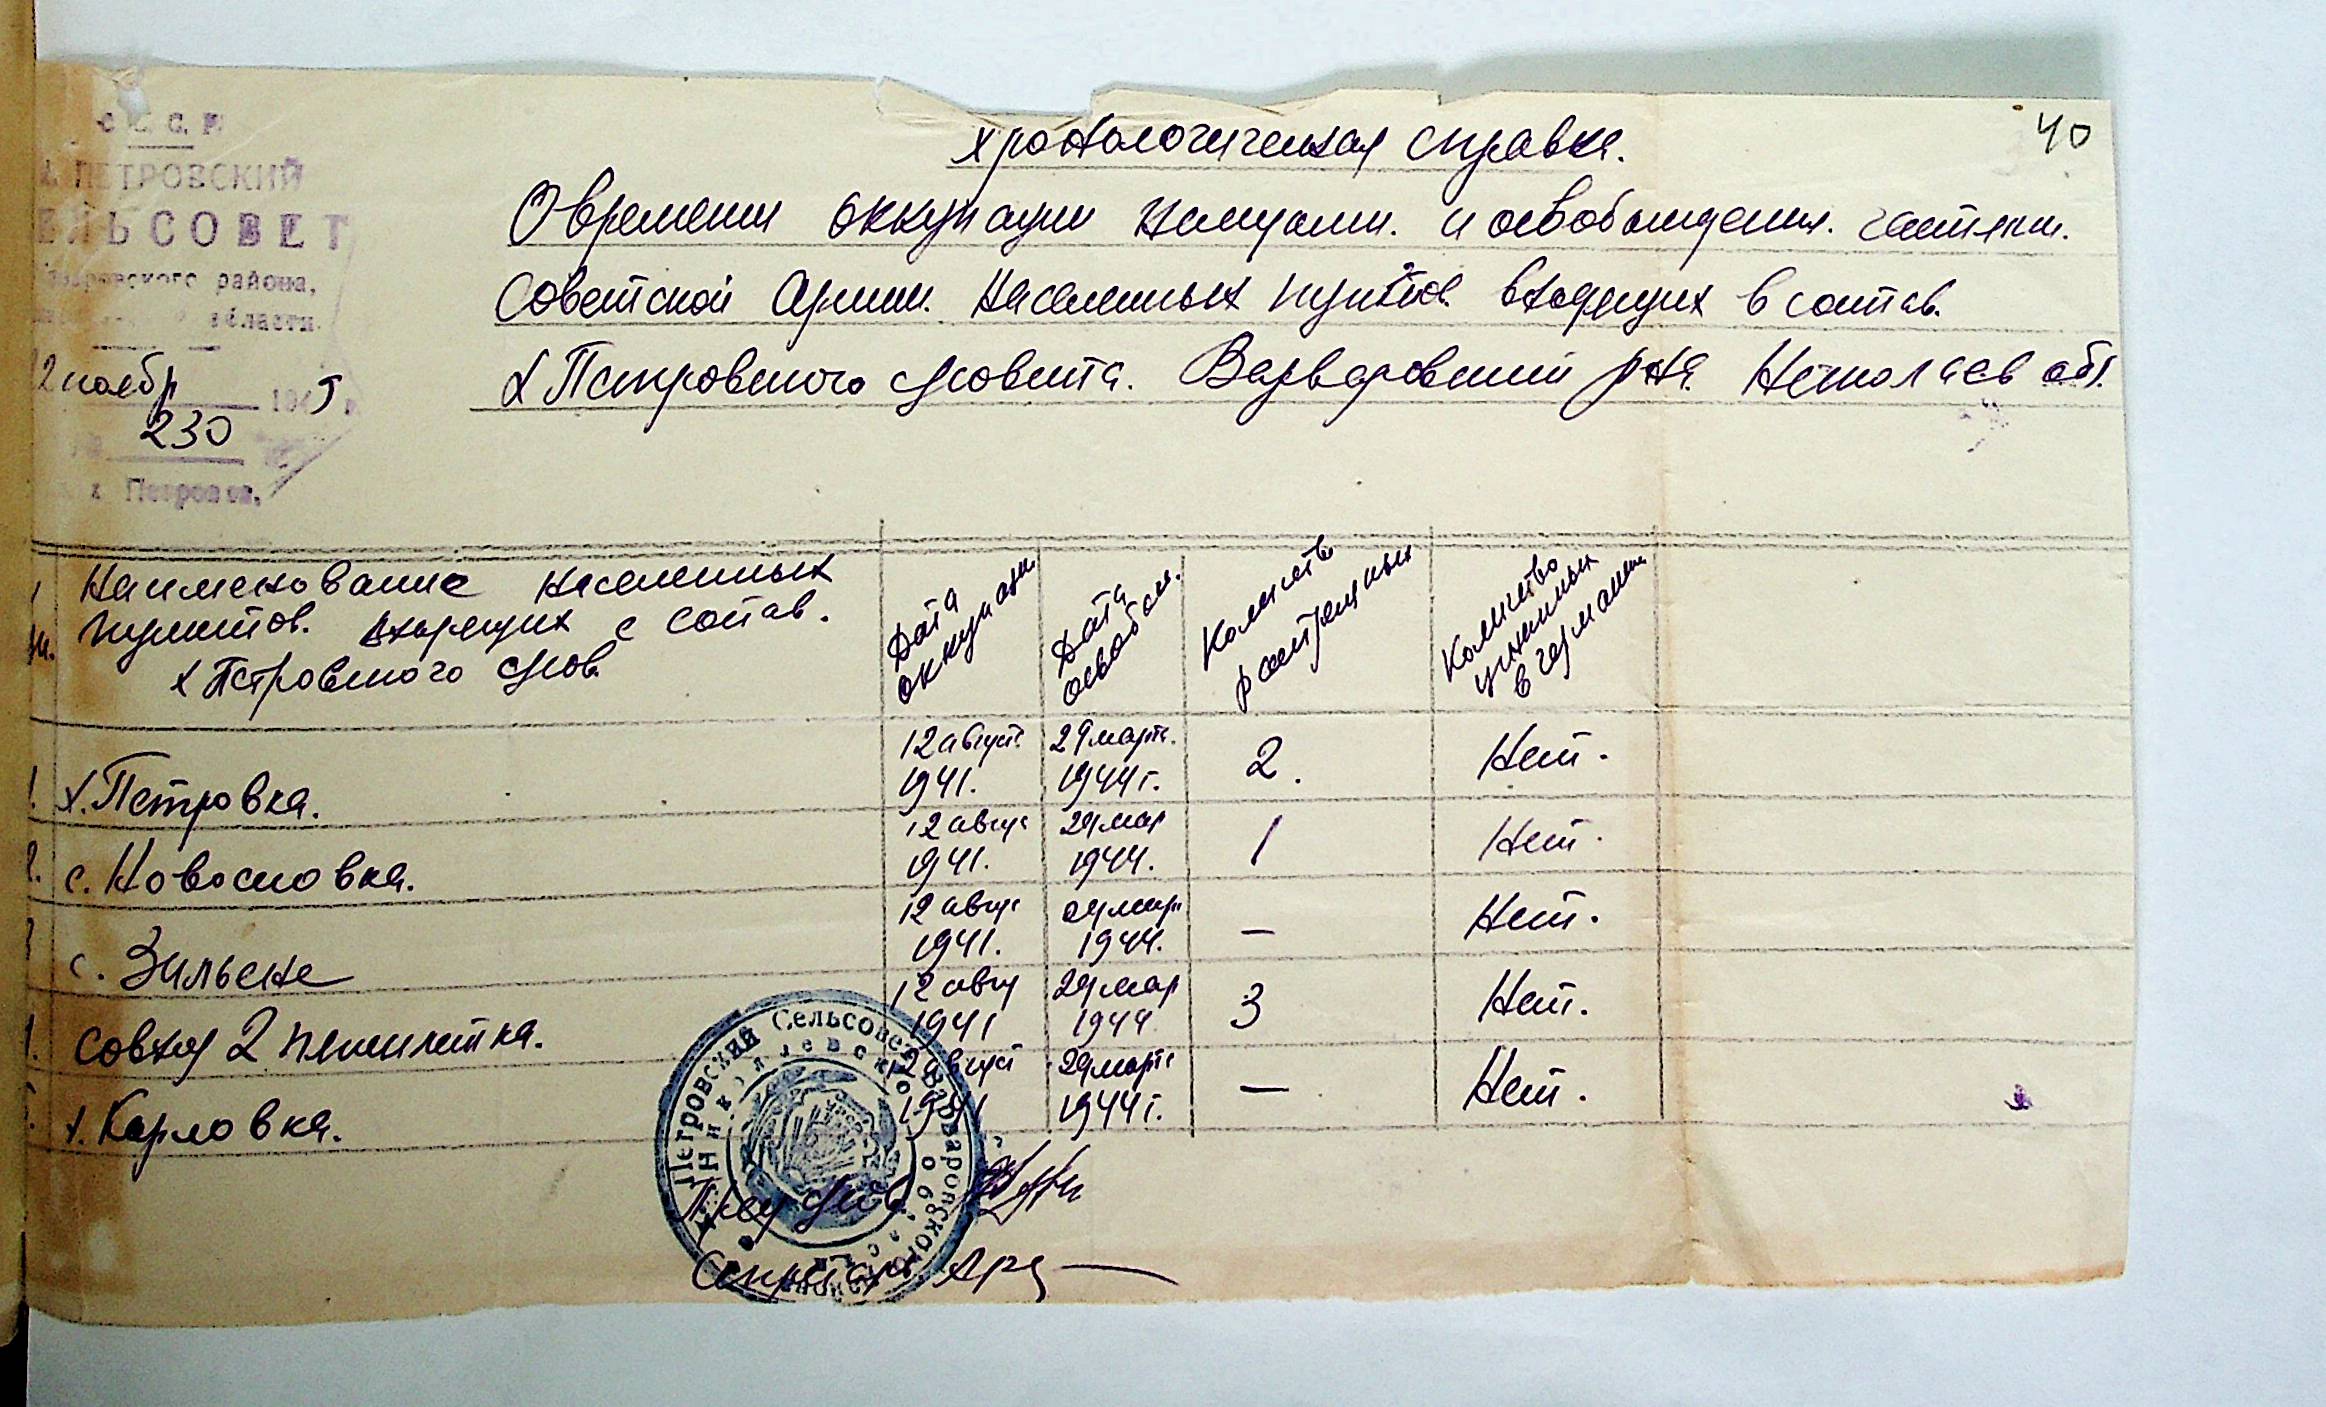 40
С. С. Р.
ПЕТРОВСКИЙ
ЕЛЬСОВЕТ
района,
области
2 ноябр 1945
230
х Петровка,
Хронологическая справка.
О времени оккупации немцами. и освобождения. частями.
Советской Армии. населенных пунктов входящих в состав.
х Петровского с/совета. Варваровский р-на Николаев обл.
Наименование населенных
пунктов. входящих с состав.
х Петровского с/сов.
Дата
оккупации
Дата
освобож.
Количеств
растрелянных
Количество
угнанных
в германию
1. х. Петровка.
12 август.
1941.
29 марта.
1944 г.
2.
Нет.
2. с. Новосиловка.
12 авгус
1941.
29 мар
1944.
1
Нет.
3 с. Зильене
12 авгус
1941.
29 мар
1944.
—
Нет.
совхоз 2 пятилетка.
12 авгу
1941
29 мар
1944
3
Нет.
х. Карловка.
12 август
1941
29 марта
1944 г.
—
Нет.
Петровский Сельсовет Варваровского района
Николаевской области
Пред с/сов
Секретарь